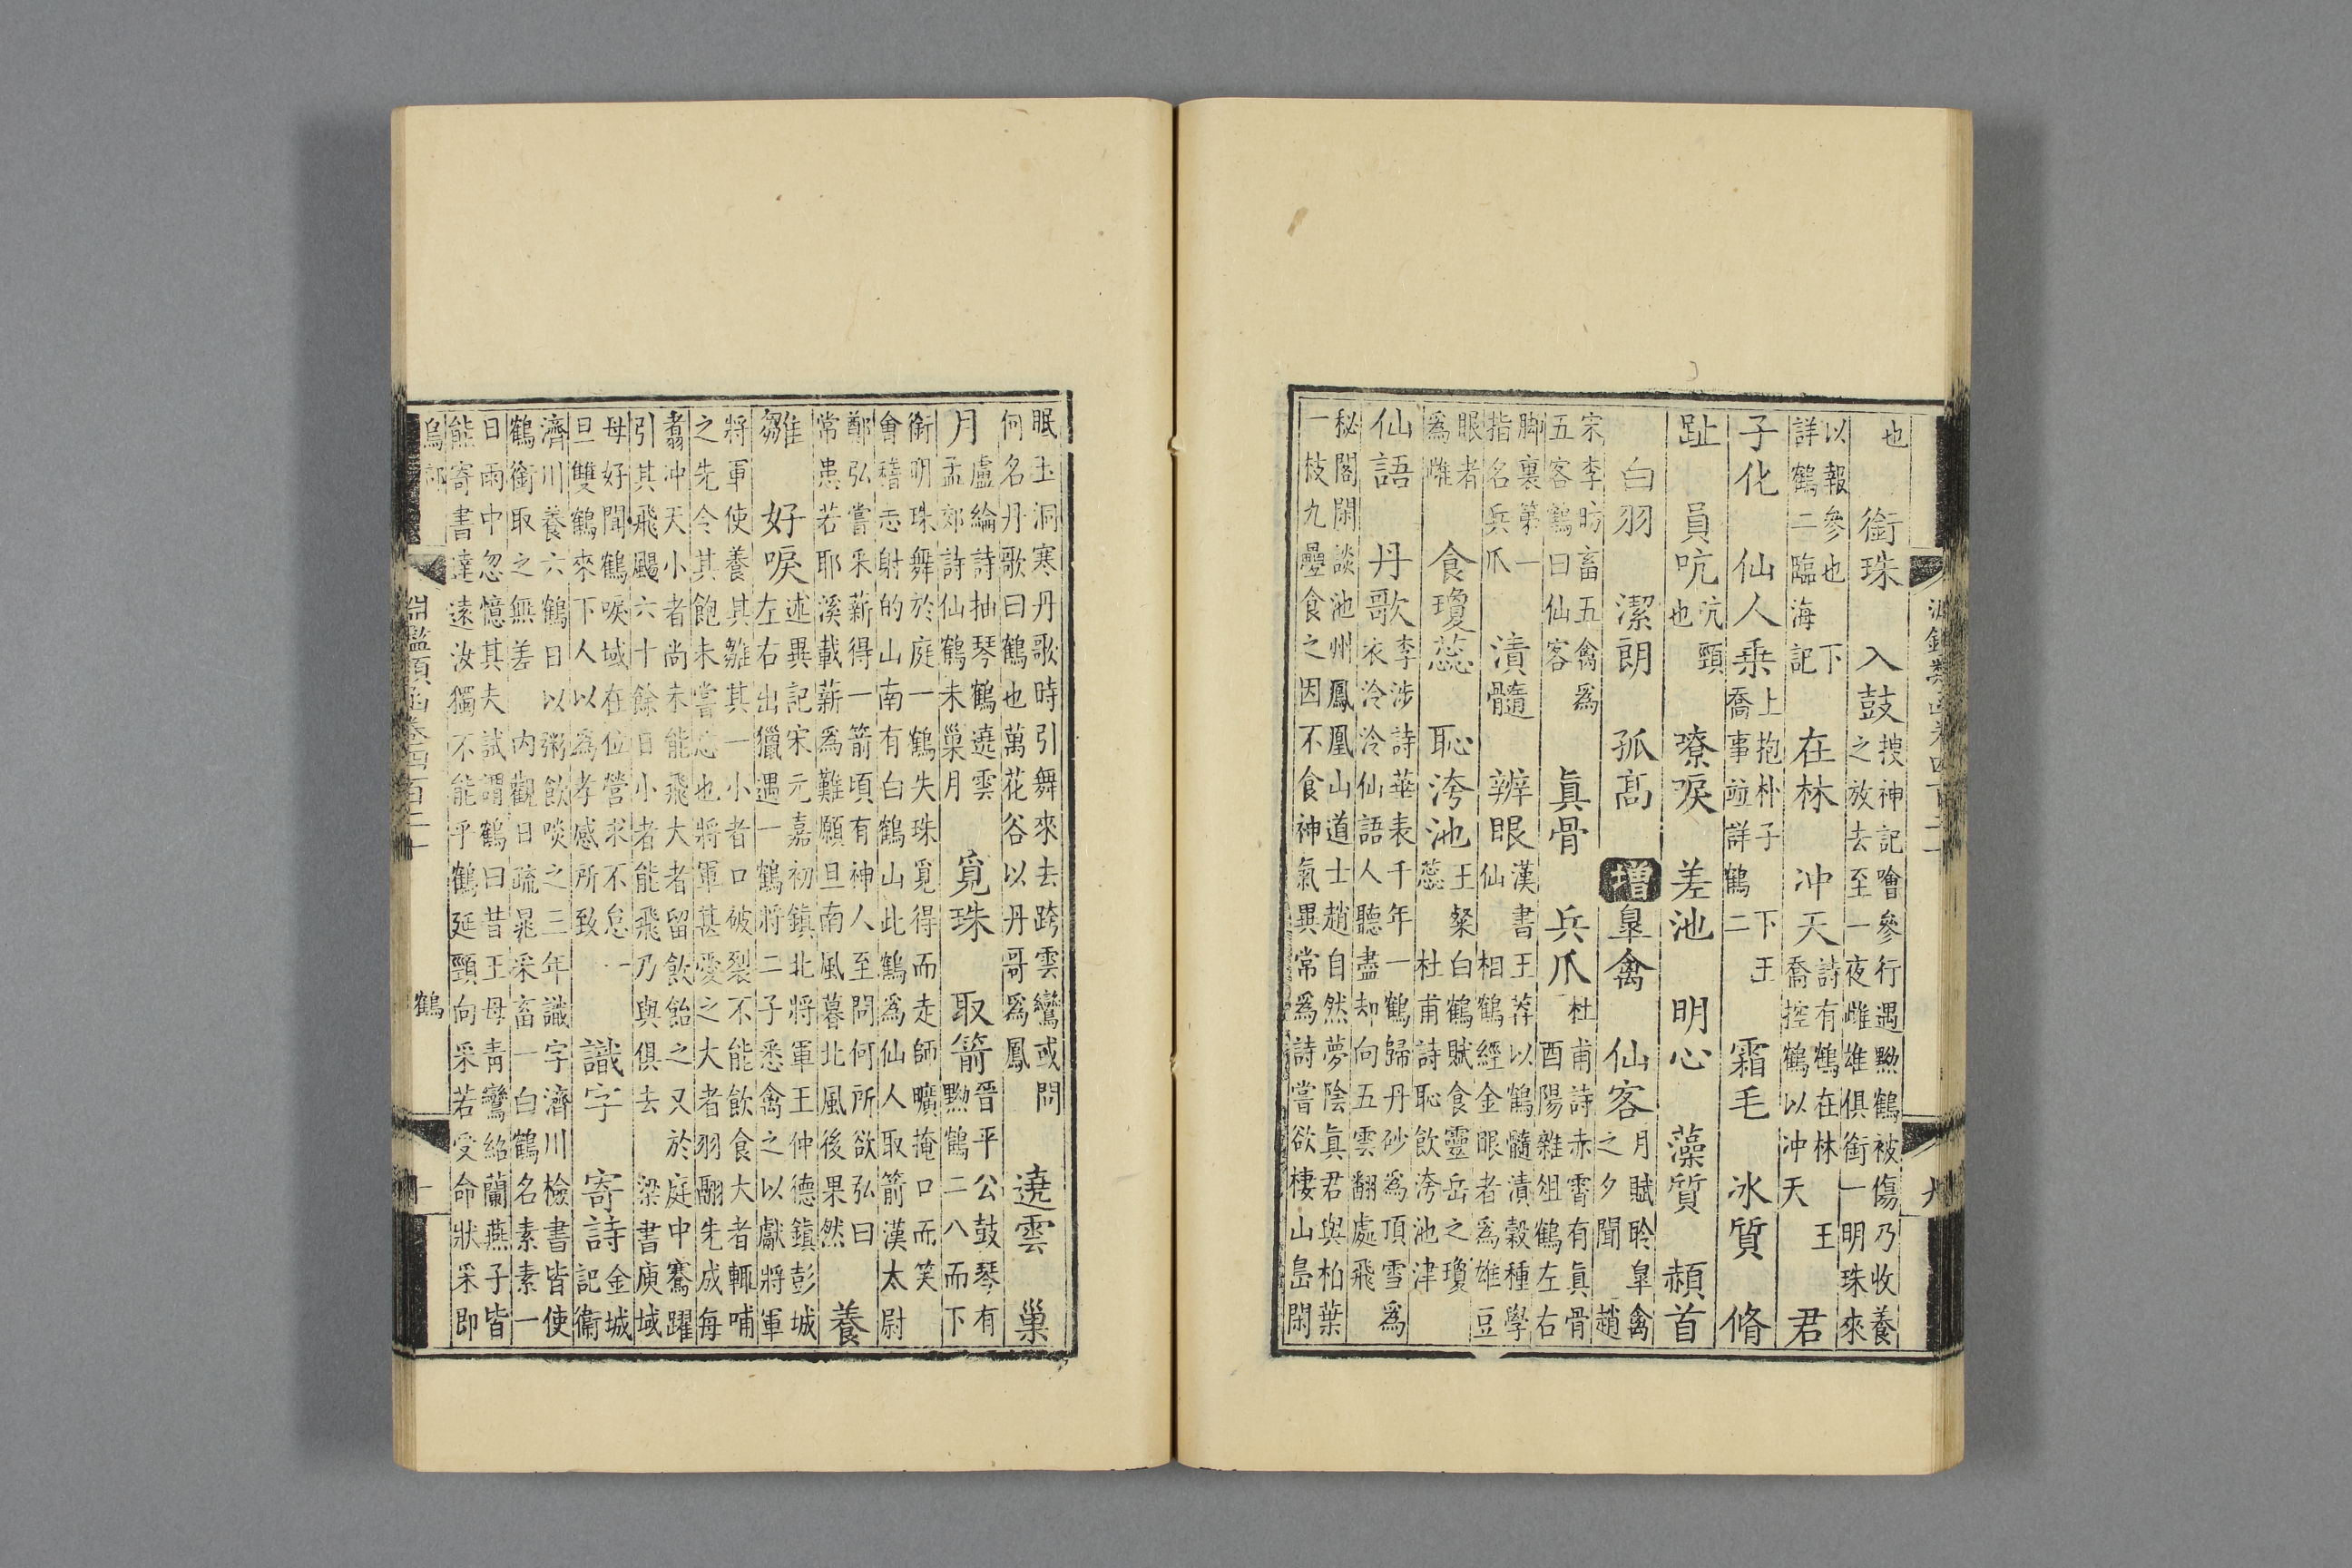 也
銜珠　入鼓
搜神記噲參行遇黝鶴被傷乃收養
之放去至一夜雌雄俱銜一明珠來
以報參也　下
詳鶴二臨海記
在林　冲天
詩有鶴在林　王
喬控鶴以冲天
君
子化　仙人乘
上抱朴子　下王
喬事竝詳鶴二
霜毛　冰質　脩
趾　員吭
吭頸
也
嘹唳　差池　明心　藻質　赬首
白羽　潔朗　孤高　增　皐禽　仙客
月賦聆皐禽
之夕聞　趙
宋李昉畜五禽爲
五客鶴曰仙客
眞骨　兵爪
杜甫詩赤霄有眞骨
酉陽雜俎鶴左右
脚裏第一
指名兵爪
漬髓　辨眼
漢書王莽以鶴髓漬穀種學
仙　相鶴經金眼者爲雄豆
眼者
爲雌
食瓊蕊　恥洿池
王粲白鶴賦食靈岳之瓊
蕊　杜甫詩恥飲洿池津
仙語　丹歌
李涉詩華表千年一鶴歸丹砂爲頂雪爲
衣泠泠仙語人聽盡却向五雲翻處飛
秘閣閑談池州鳳凰山道士趙自然夢陰眞君與柏葉
一枝九疊食之因不食神氣異常爲詩嘗欲棲山島閑
眠玉洞寒丹歌時引舞來去跨雲鸞或問
何名丹歌曰鶴也萬花谷以丹哥爲鳳
遶雲　巢
月
盧綸詩抽琴鶴遶雲
孟郊詩仙鶴未巢月
覓珠　取箭
晉平公鼓琴有
黝鶴二八而下
銜明珠舞於庭一鶴失珠覓得而走師曠掩口而笑
會稽志射的山南有白鶴山此鶴爲仙人取箭漢太尉
鄭弘嘗采薪得一箭頃有神人至問何所欲弘曰
常患若耶溪載薪爲難願旦南風暮北風後果然
養
雛　好唳
述異記宋元嘉初鎮北將軍王仲德鎮彭城
左右出獵遇一鶴將二子悉禽之以獻將軍
將軍使養其雛其一小者口破裂不能飲食大者輒哺
之先令其飽未嘗忘也將軍甚愛之大者羽翮先成每
翥冲天小者尚未能飛大者留飲飴之又於庭中騫躍
引其飛颺六十餘日小者能飛乃與俱去　梁書庾域
母好聞鶴唳域在位營求不怠一
旦雙鶴來下人以爲孝感所致
識字　寄詩
金城
記衞
濟川養六鶴日以粥飲啖之三年識字濟川檢書皆使
鶴銜取之無差　内觀日疏晁采畜一白鶴名素素一
日雨中忽憶其夫試謂鶴曰昔王母靑鸞紹蘭燕子皆
能寄書達遠汝獨不能乎鶴延頸向采若受命狀采即
淵鑑類函卷四百二十　鶴